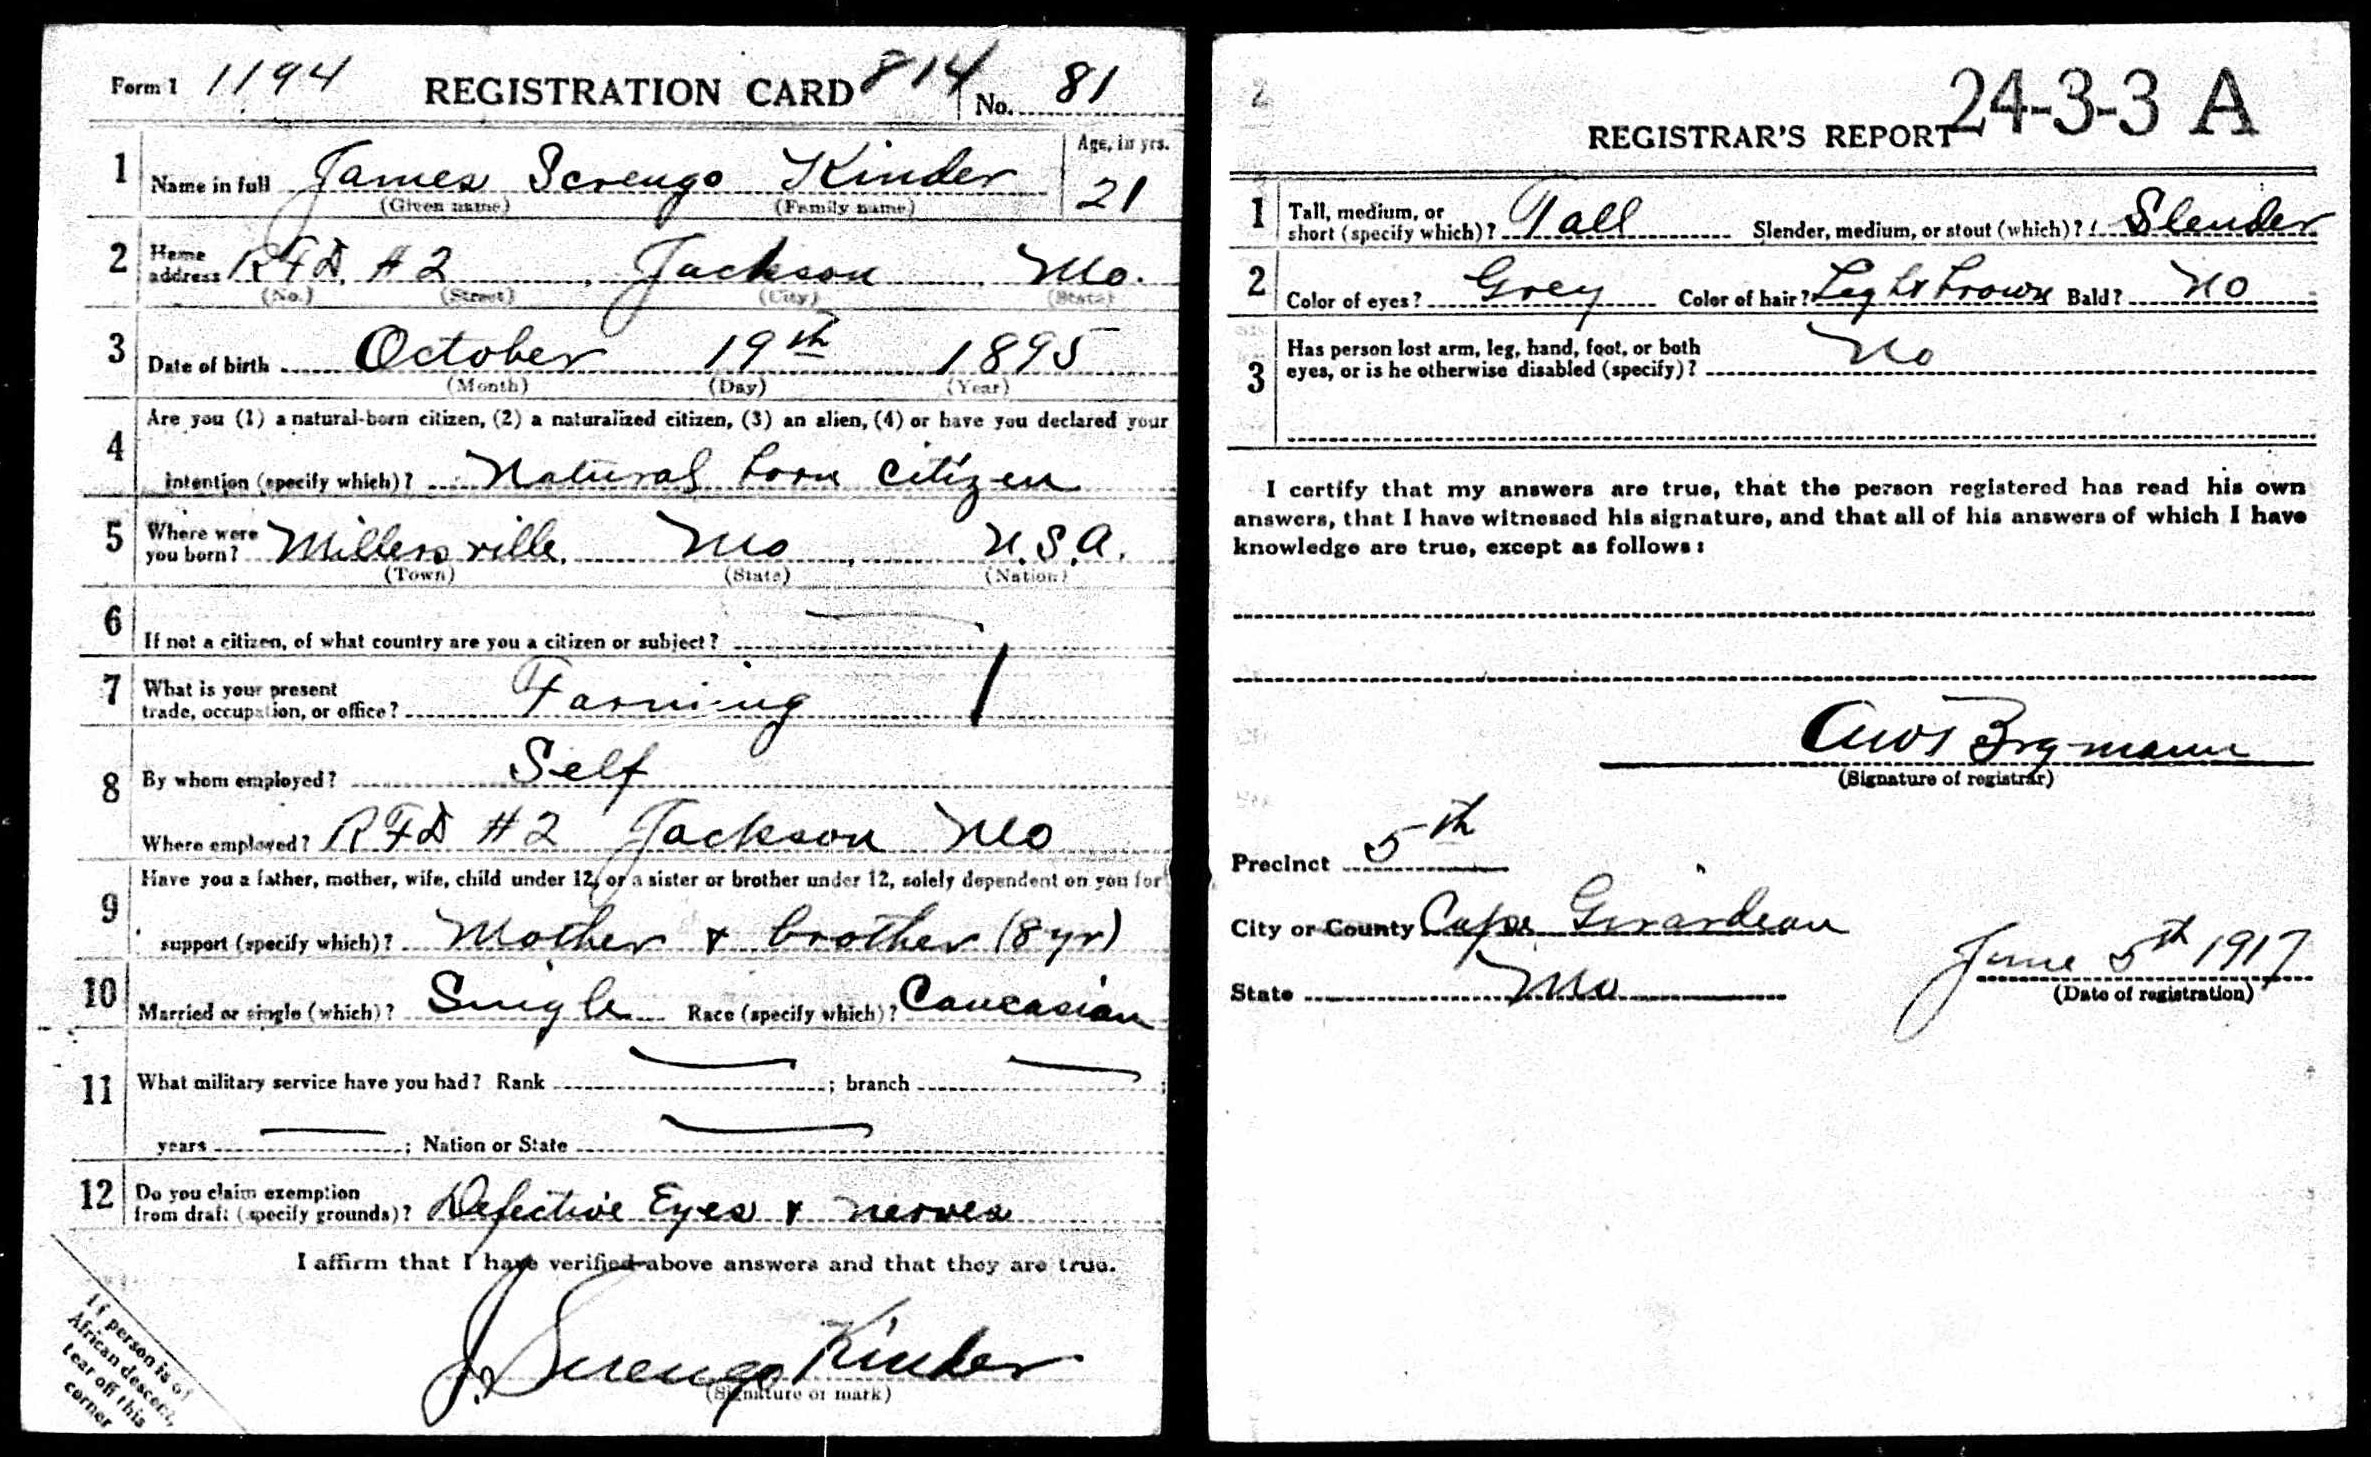 Form 1 1194 REGISTRATION CARD 814 No. 81
1 Name in full James Screngo Kinder Age, in yrs. 21
(Given name) (Family name)
2 Home address RFD. #2, Jackson, Mo.
(No.) (Street) (City) (State)
3 Date of birth October 19th 1895
(Month) (Day) (Year)
4 Are you (1) a natural-born citizen, (2) a naturalized citizen, (3) an alien, (4) or have you declared your
intention (specify which)? Natural born citizen
5 Where were you born? Millersville, Mo, U.S.A.
(Town) (State) (Nation)
6 If not a citizen, of what country are you a citizen or subject?
7 What is your present
trade, occupation, or office? Farming
8 By whom employed? Self
Where employed? RFD #2 Jackson Mo
9 Have you a father, mother, wife, child under 12, or a sister or brother under 12, solely dependent on you for
support (specify which)? Mother & brother (8 yr)
10 Married or single (which)? Single Race (specify which)? Caucasian
11 What military service have you had? Rank ; branch ;
years ; Nation or State
12 Do you claim exemption
from draft (specify grounds)? Defective Eyes & nerves
I affirm that I have verified above answers and that they are true.
J. Kinder
(Signature or mark)
If person is of
African descent,
tear off this
corner
24-3-3 A
REGISTRAR'S REPORT
1 Tall, medium, or
short (specify which)? Tall Slender, medium, or stout (which)? Slender
2 Color of eyes? Grey Color of hair? Light brown Bald? No
3 Has person lost arm, leg, hand, foot, or both
eyes, or is he otherwise disabled (specify)? No
I certify that my answers are true, that the person registered has read his own
answers, that I have witnessed his signature, and that all of his answers of which I have
knowledge are true, except as follows:
(Signature of registrar)
Precinct 5th
City or County Cape Girardeau
State Mo
June 5th 1917
(Date of registration)